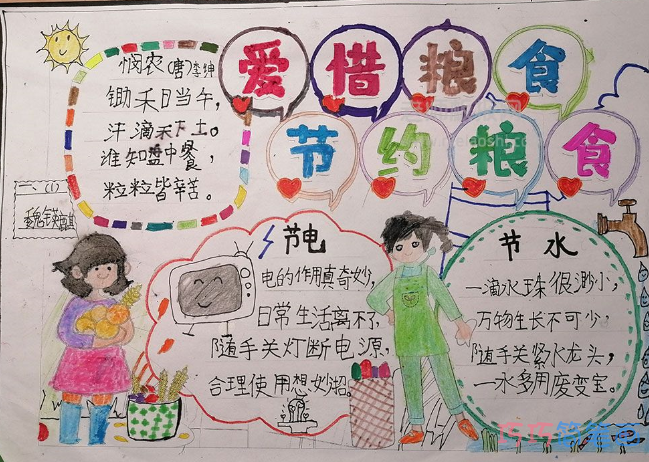 爱惜粮食
节约粮食
悯农(唐)李绅
锄禾日当午,
汗滴禾下土。
谁知盘中餐,
粒粒皆辛苦。
一、(1)
节电
电的作用真奇妙,
日常生活离不了,
随手关灯断电源,
合理使用想妙招。
节水
一滴水珠很渺小,
万物生长不可少,
随手关紧水龙头,
一水多用废变宝。